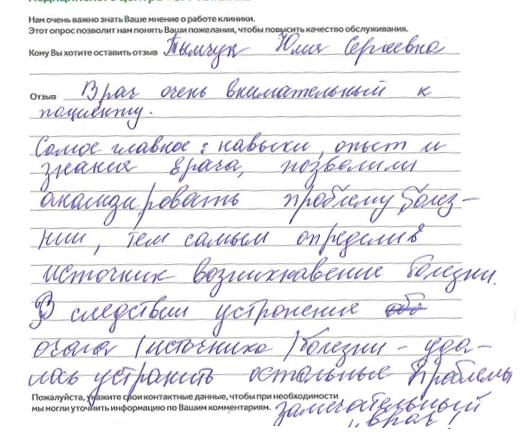 Нам очень важно знать Ваше мнение о работе клиники.
Этот опрос позволит нам понять Ваши пожелания, чтобы повысить качество обслуживания.
Кому Вы хотите оставить отзыв Тымчук Юлия Сергеевна
Отзыв Врач очень внимательный к
пациенту.
Самое главное: навыки, опыт и
знания врача, позволили
анализировать проблему болез-
нии, тем самым определив
источник возникновение болезни.
В следствии устронение
очага (источника) болезни - уда-
лась устранить остальные проблемы
Пожалуйста, укажите свои контактные данные, чтобы при необходимости
мы могли уточнить информацию по Вашим комментариям. замечательный
врач!